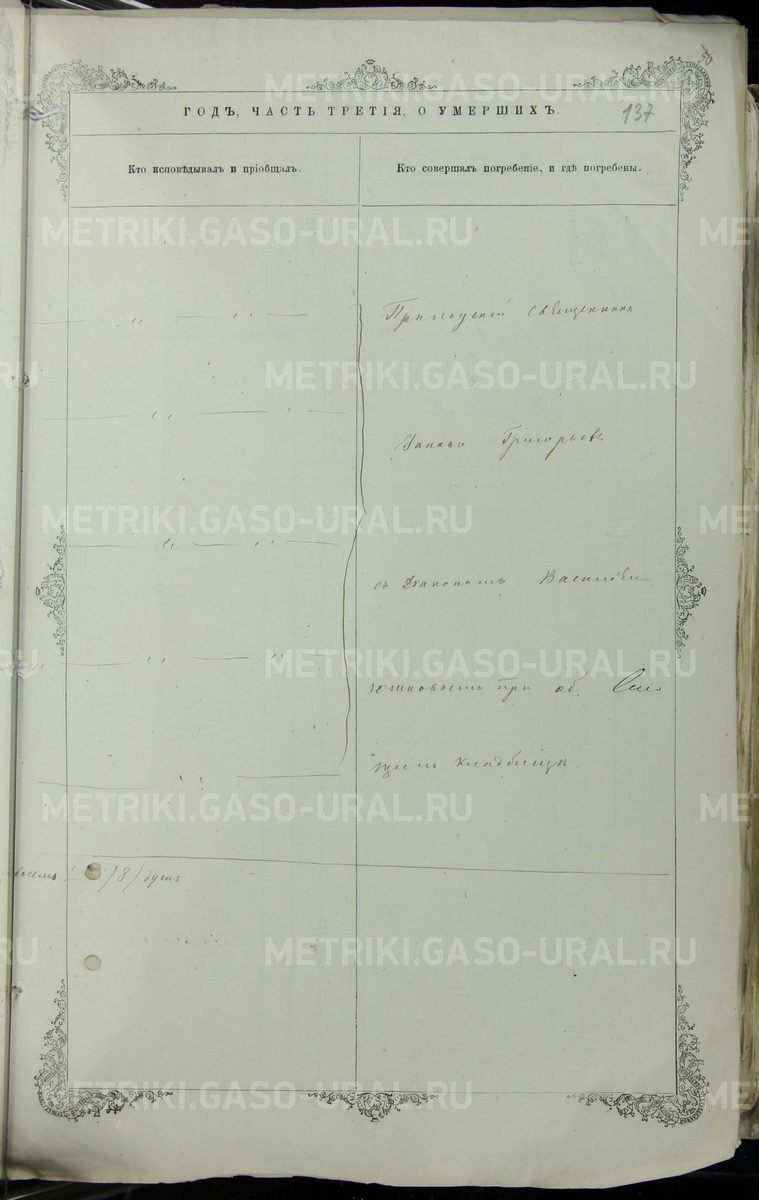 50
137
ГОДЪ, ЧАСТЬ ТРЕТІЯ, О УМЕРШИХЪ.
Кто исповѣдывалъ и пріобщалъ.
Кто совершалъ погребеніе, и гдѣ погребены.
Приходскій Священникъ
Григорьевъ
съ Діакономъ
при об
кладбищѣ.
/8/ душъ
METRIKI.GASO-URAL.RU